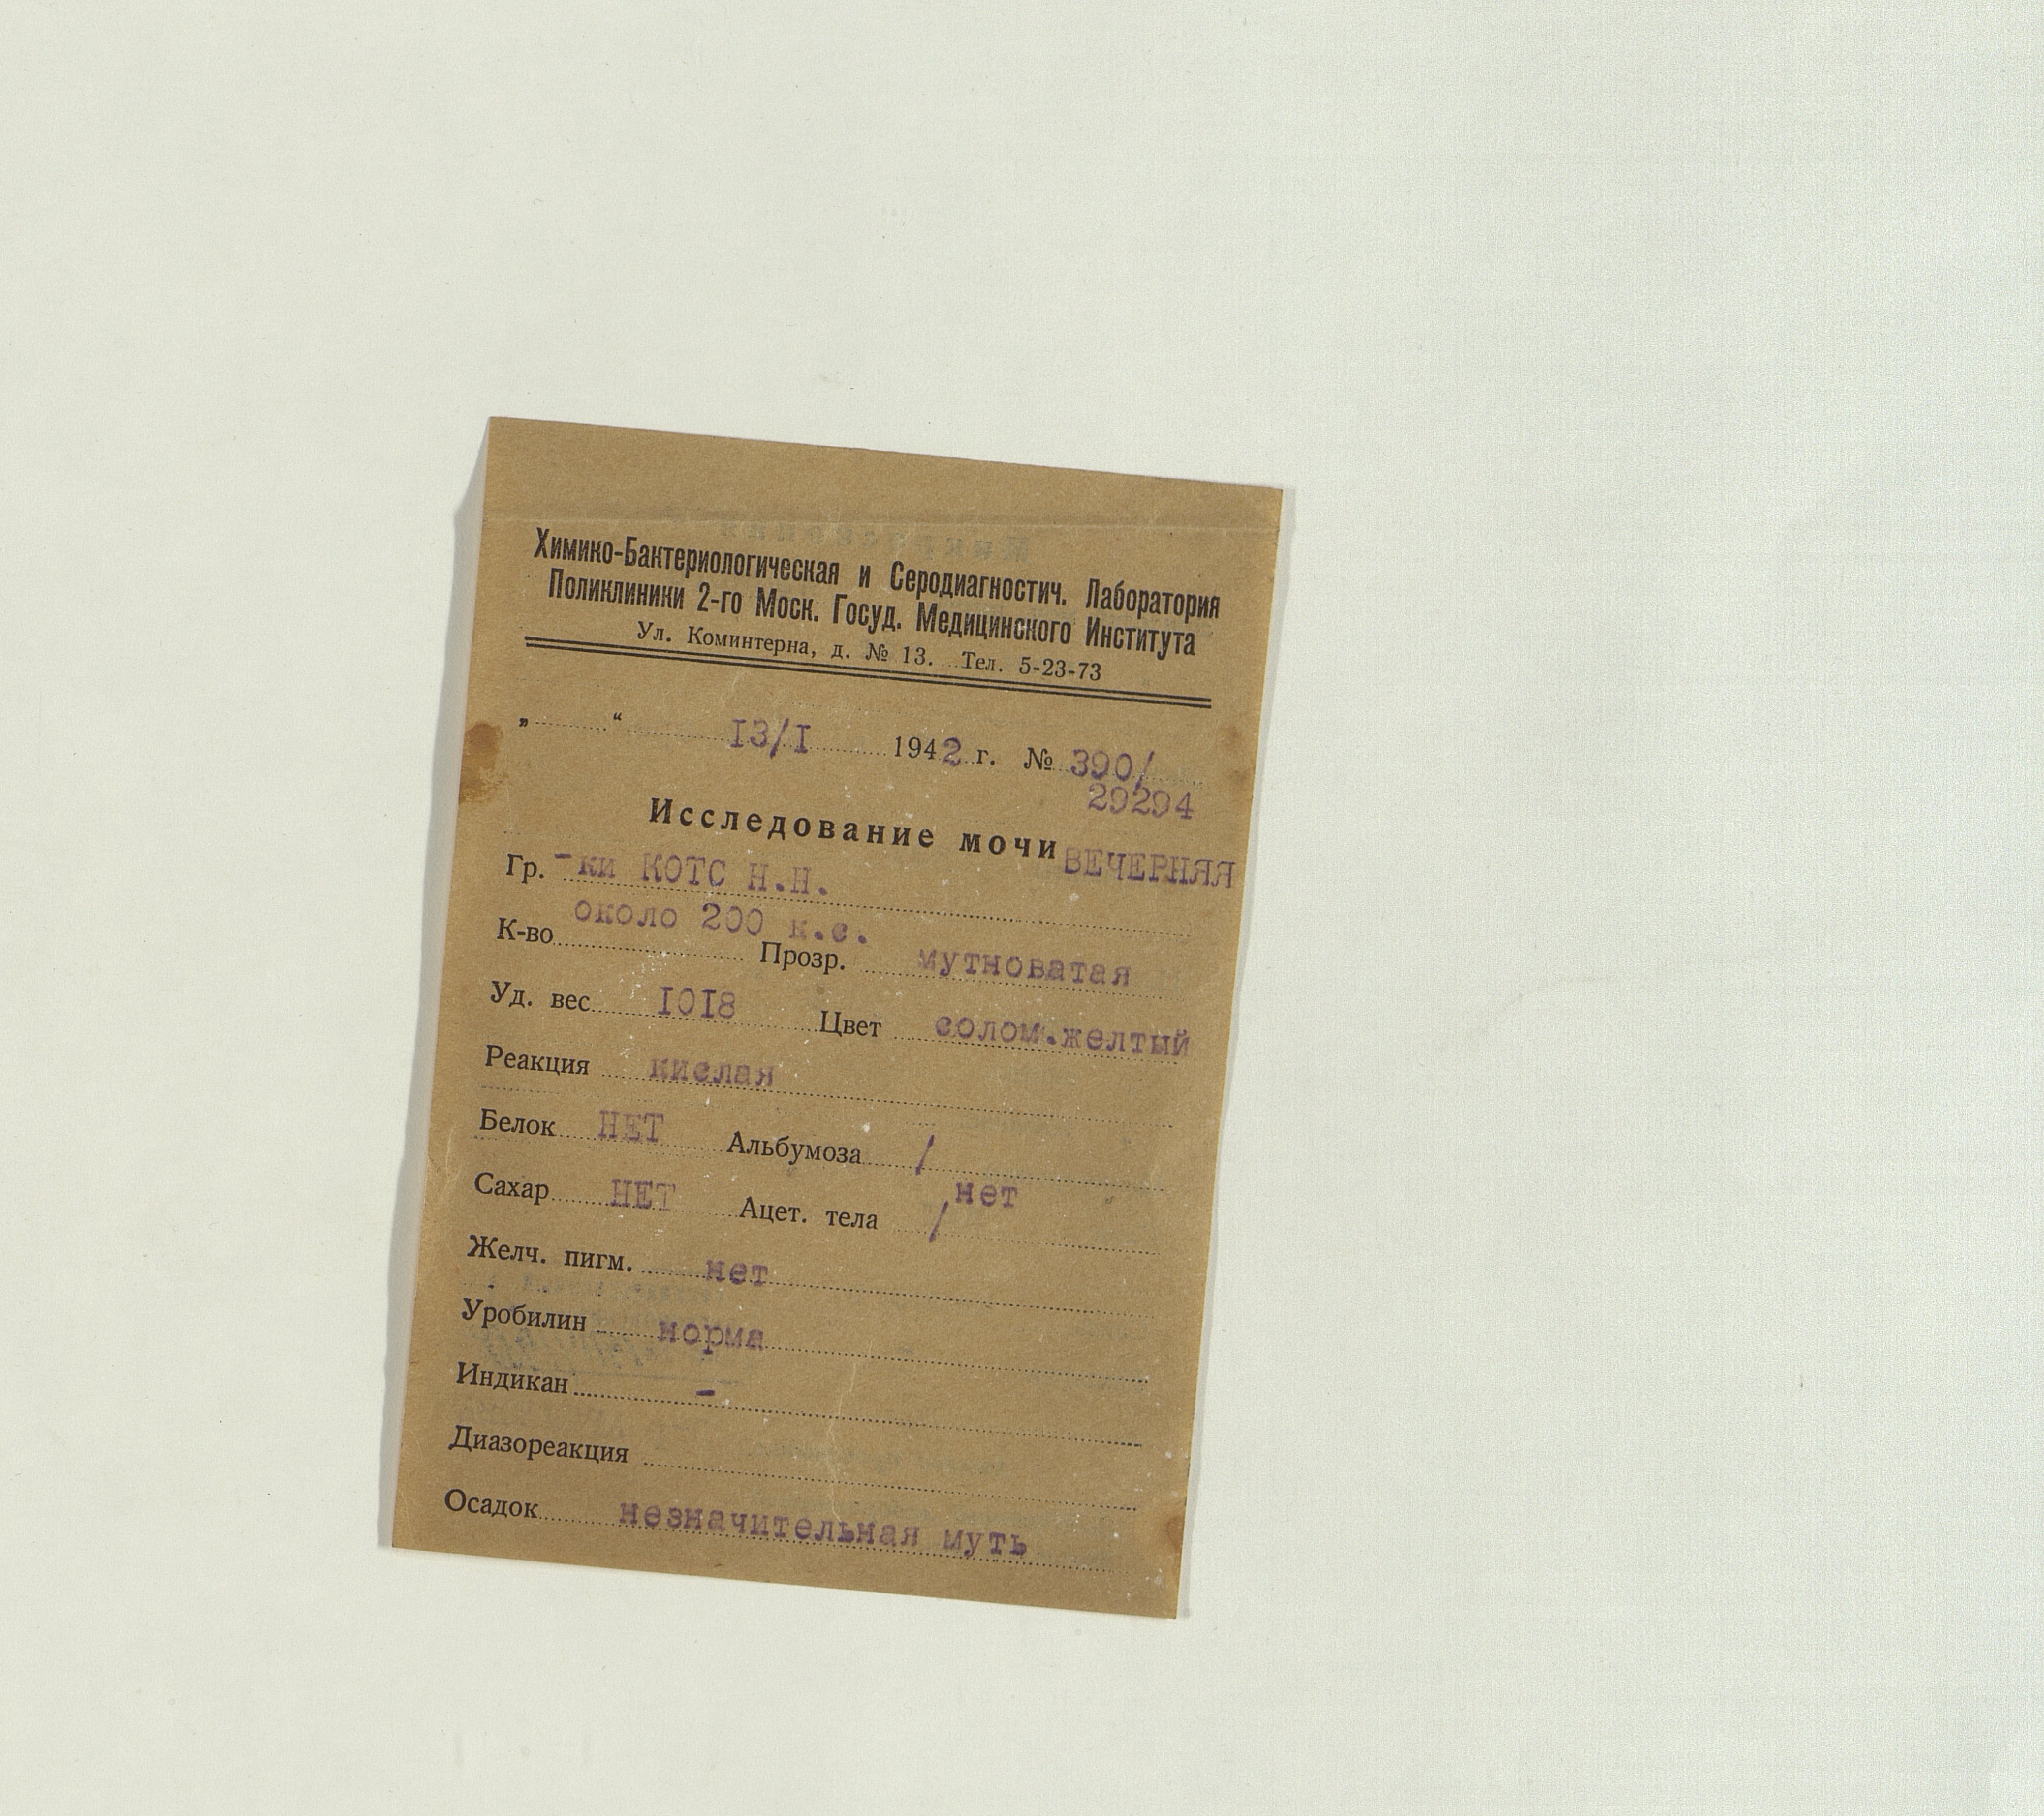 Химико-Бактериологическая и Серодиагностич. Лаборатория
Поликлиники 2-го Моск. Госуд. Медицинского Института
Ул. Коминтерна, д. № 13. Тел. 5-23-73
„ “ 13/I 1942 г. № 390/
29294
Исследование мочи ВЕЧЕРНЯЯ
Гр. -ки КОТС Н.Н.
К-во около 200 к.с. Прозр. мутноватая
Уд. вес 1018 Цвет солом.желтый
Реакция кислая
Белок НЕТ Альбумоза /
Сахар НЕТ Ацет. тела / нет
Желч. пигм. нет
Уробилин норма
Индикан -
Диазореакция
Осадок незначительная муть